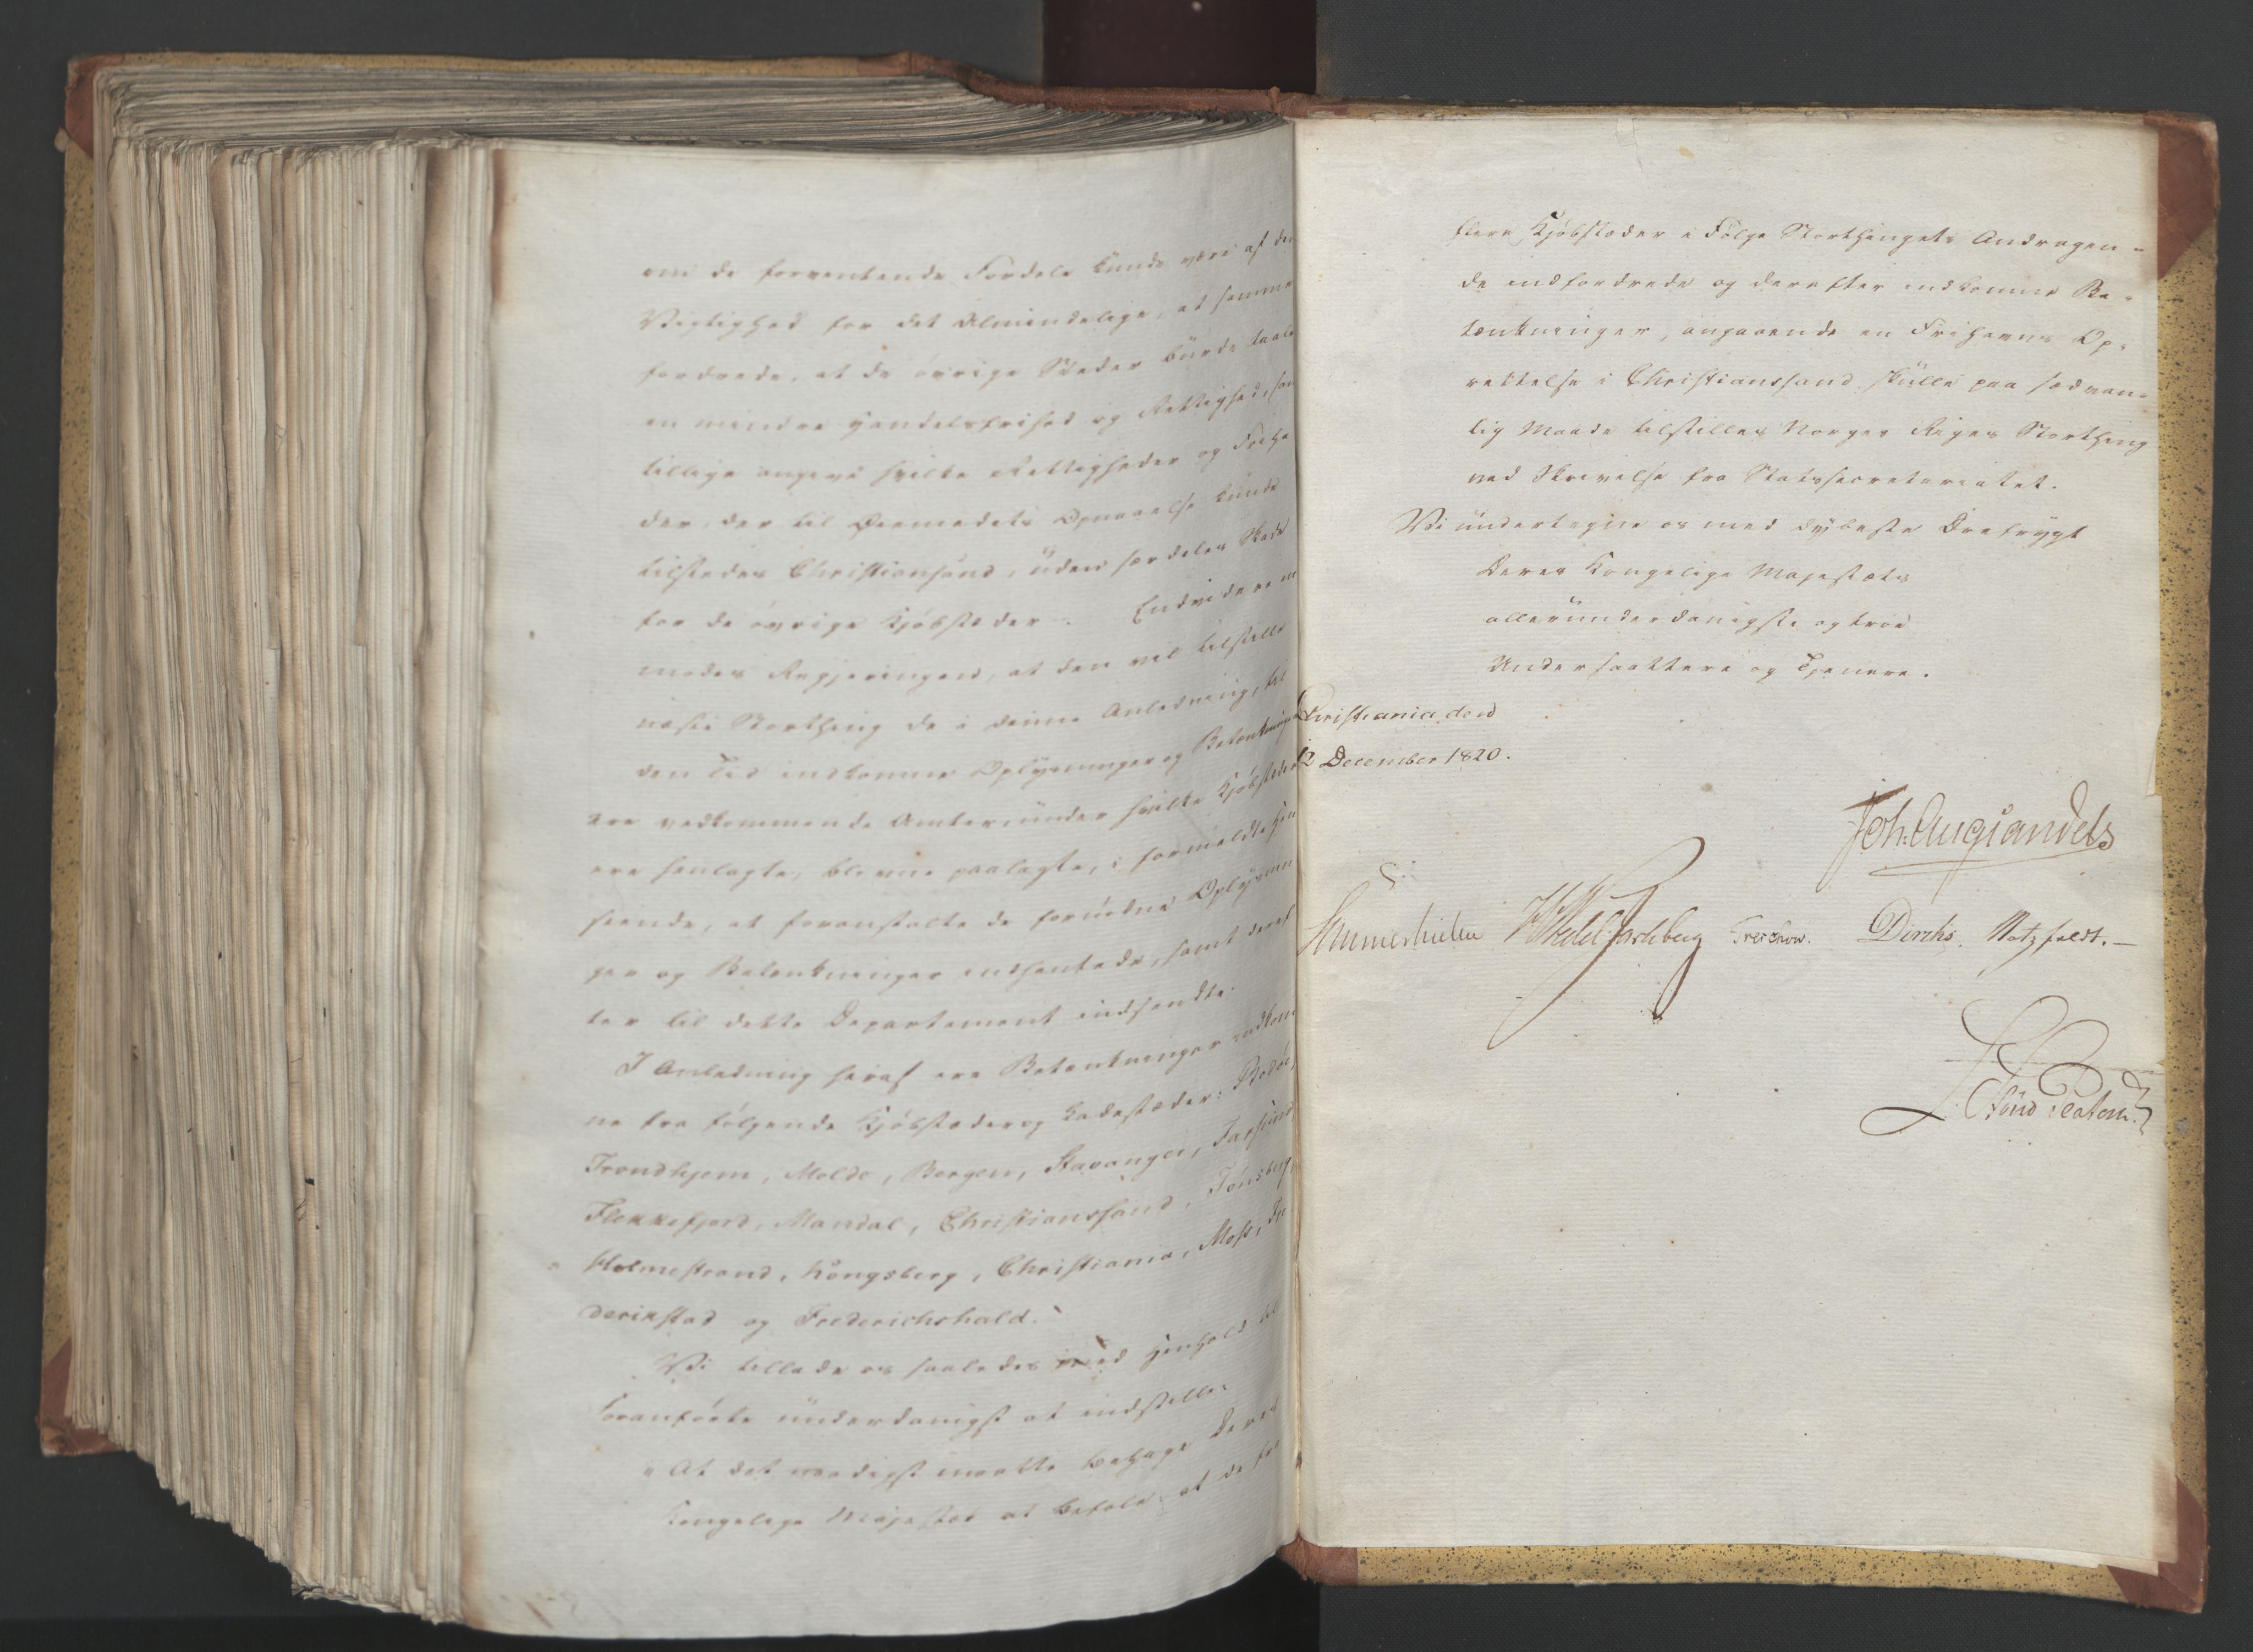 om de forventende Fordele kunde være af den
Vigtighed for det Almindelige, at samme
fordrede, at de øvrige Stæder burde taale
en mindre Handelsfrihed og Rettighed, samt
tillige angive hvilke Rettigheder og Frihe
der, der til Øiemedets Opnaaelse kunde
tilstedes Christiansand, uden særdeles Skade
for de øvrige Kjøbstæder. Endvidere an
modes Regjeringen, at den vil tilstille
næste Storthing de i denne Anledning, til
den Tid indkomne Oplysninger og Betænkninger
ere vedkommende Amter, under hvilke Kjøbstæder
ere henlagte, blevne paalagte, i formeldte Hen
seende, at foranstalte de fornødne Oplysnin
ger og Betænkninger indhentede, samt deref
ter til dette Departement indsendte.
I Anledning heraf ere Betænkninger indkom
ne fra følgende Kjøbstæder og Ladestæder: Bodøe,
Trondhjem, Molde, Bergen, Stavanger, Farsund,
Flekkefjord, Mandal, Christianssand, Tønsberg,
Holmestrand, Kongsberg, Christiania, Moss, Fre
derikstad og Frederichshald.
Vi tillade os saaledes med Henhold til
Foranførte underdanigst at indstille:
"At det naadigst maatte behage Deres
Kongelige Majestæt at befale at de fra
flere Kjøbstæder i Følge Storthingets Andragen-
de indfordrede og derefter indkomne Be-
tænkninger, angaaende en Frihavns Op-
rettelse i Christianssand skulle paa sædvan-
lig Maade tilstilles Norges Riges Storthing
ved Skrivelse fra Statssecretariatet.
Vi undertegne os med dybeste Ærefrygt
Deres Kongelige Majestæts
allerunderdanigste og troe
Undersaattere og Tjenere.
Christiania den
12 December 1820.
Joh. Aug. Sandels
Sommerhielm HWedel Jarlsberg Treschow. Diriks. Motzfeldt.